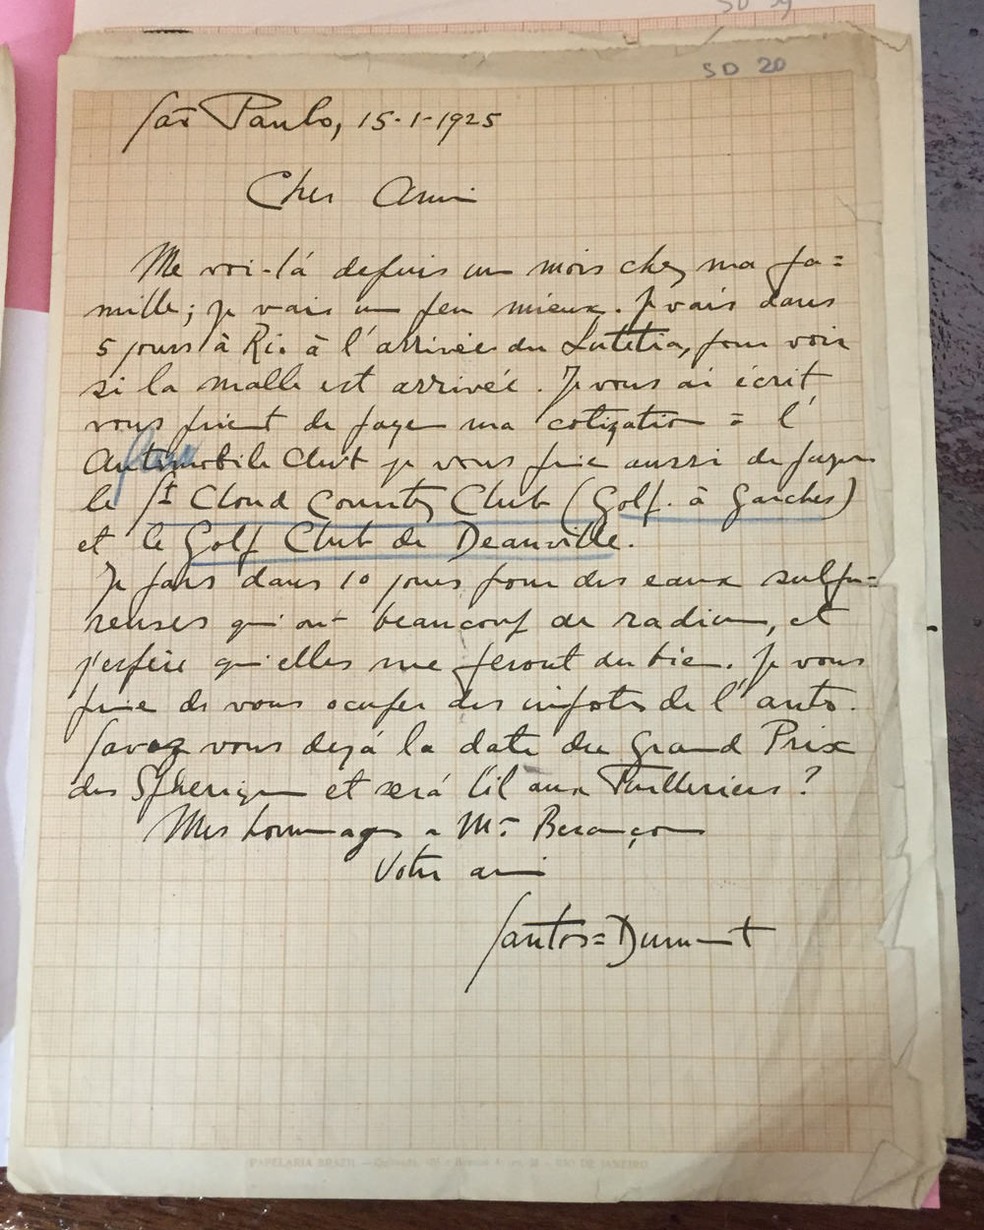 SD 20
São Paulo, 15-1-1925
Cher Ami
Me voi-lá depuis un mois chez ma fa=
mille; je vais un peu mieux. Je vais dans
5 jours à Rio à l'arrivée du Lutetia, pour voir
si la malle est arrivée. Je vous ai écrit
vous priant de payer ma cotization à l'
Automobile Club je vous prie aussi de payer
le St Cloud Country Club (Golf. à Garches)
et le Golf Club de Deauville.
Je pars dans 10 jours pour des eaux sulfu=
reuses qui ont beaucoup de radium, et
j'espère qu'elles me feront du bien. Je vous
prie de vous ocuper des impots de l'auto.
Savez vous dejá la date du Grand Prix
des Spheriques et será t'il aux Tuilleries?
Mes hommages a Mme Besançon
Votre ami
Santos=Dumont
PAPELARIA BRAZIL RIO DE JANEIRO